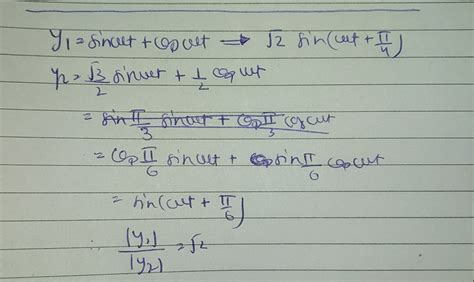 y₁ = sinωt + cosωt → √2 sin(ωt + π/4)
y₂ = √3/2 sinωt + 1/2 cosωt
= sin π/3 sinωt + cos π/3 cosωt
= cos π/6 sinωt + sin π/6 cosωt
= sin(ωt + π/6)
∴ |y₁|/|y₂| = √2